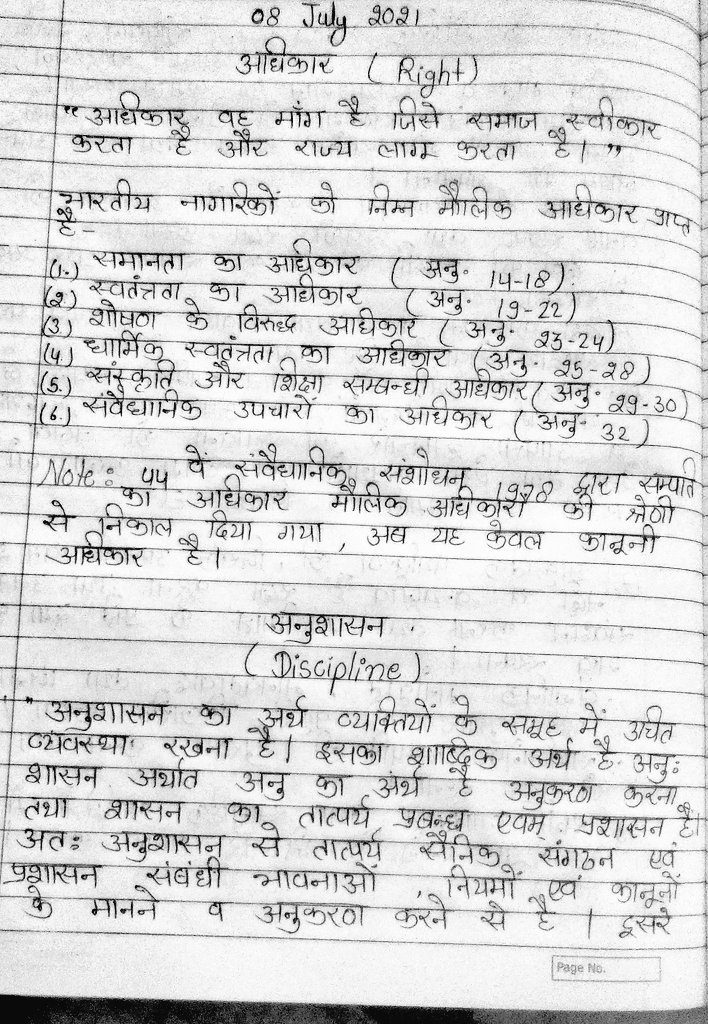 08 July 2021
अधिकार (Right)
“ अधिकार वह माँग है जिसे समाज स्वीकार
करता है और राज्य लागू करता है। ”
भारतीय नागरिकों को निम्न मौलिक अधिकार प्राप्त
है -
(1.) समानता का अधिकार ( अनु. 14-18)
(2) स्वतंत्रता का अधिकार ( अनु. 19-22)
(3) शोषण के विरुद्ध अधिकार ( अनु. 23-24)
(4.) धार्मिक स्वतंत्रता का अधिकार (अनु 25-28)
(5.) संस्कृति और शिक्षा सम्बन्धी अधिकार( अनु. 29-30)
(6.) संवैधानिक उपचारों का अधिकार ( अनु. 32)
Note: 44 वें संवैधानिक संशोधन 1978 द्वारा सम्पति
का अधिकार मौलिक अधिकारों की श्रेणी
से निकाल दिया गया , अब यह केवल कानूनी
अधिकार है।
अनुशासन
( Discipline )
" अनुशासन का अर्थ व्यक्तियों के समूह में उचित
व्यवस्था रखना है। इसका शाब्दिक अर्थ है अनु:
शासन अर्थात अनु का अर्थ है अनुकरण करना
तथा शासन का तात्पर्य प्रबन्ध एवम् प्रशासन है।
अतः अनुशासन से तात्पर्य सैनिक संगठन एवं
प्रशासन संबंधी भावनाओं , नियमों एवं कानूनों
के मानने व अनुकरण करने से है । दूसरे
Page No.